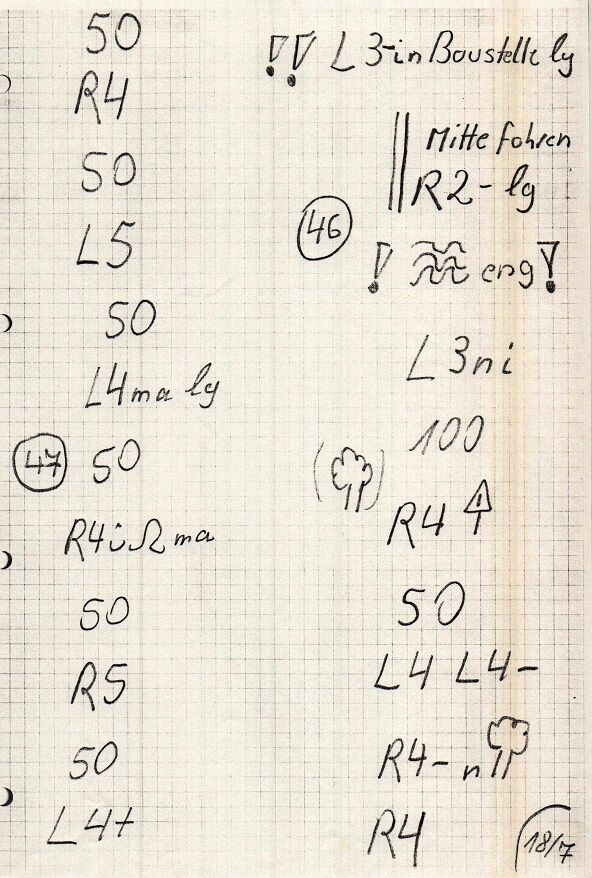 50
R4
50
L5
50
L4 ma lg
47 50
R4 ü Ω ma
50
R5
50
L4+
!! L3-in Baustelle lg
Mitte fahren
R2- lg
46
! eng!
L3 ni
100
R4
50
L4 L4-
R4- n
R4
18/7